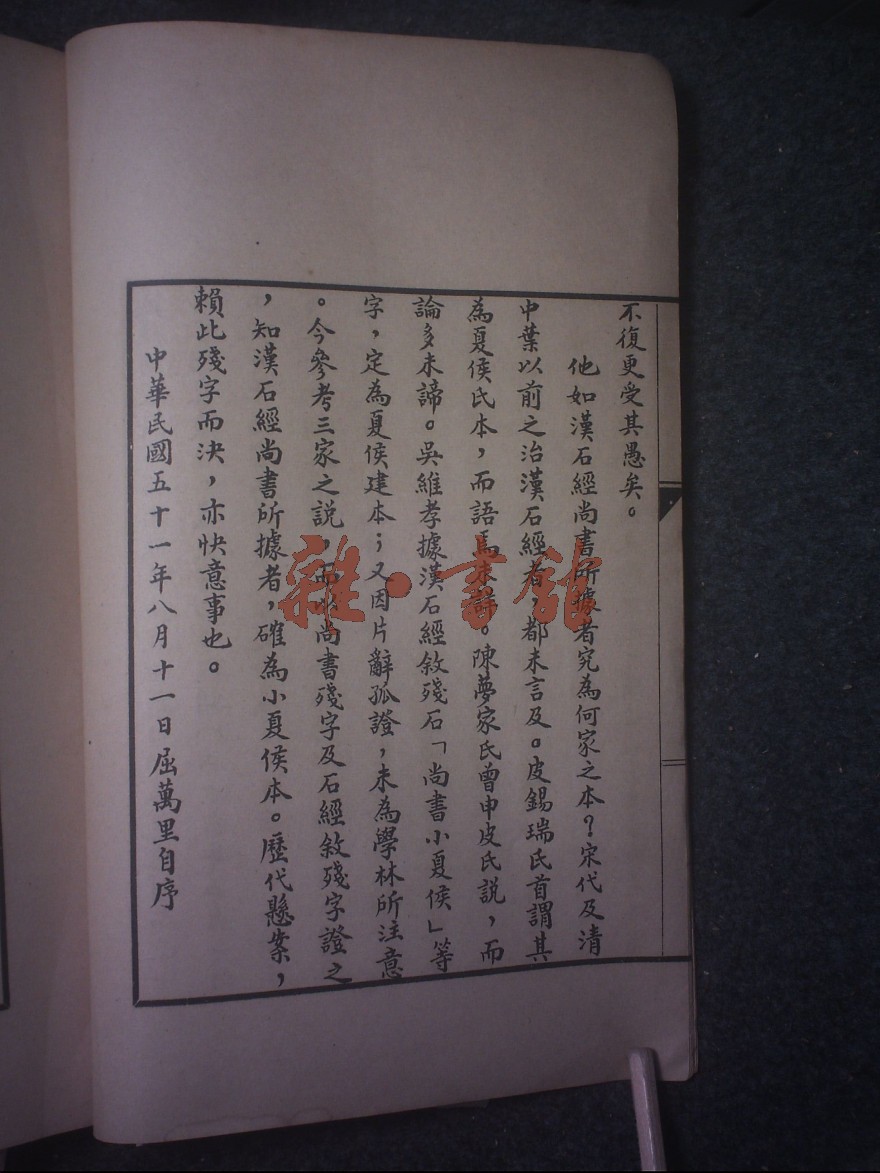 不復更受其愚矣。
他如漢石經尚書所據者究為何家之本？宋代及清
中葉以前之治漢石經者，都未言及。皮錫瑞氏首謂其
為夏侯氏本，而語焉未詳。陳夢家氏曾申皮氏說，而
論多未諦。吳維孝據漢石經敘殘石「尚書小夏侯」等
字，定為夏侯建本；又因片辭孤證，未為學林所注意
。今參考三家之説，而以尚書殘字及石經敘殘字證之
，知漢石經尚書所據者，確為小夏侯本。歷代懸案，
賴此殘字而決，亦快意事也。
中華民國五十一年八月十一日屈萬里自序
雜·書館